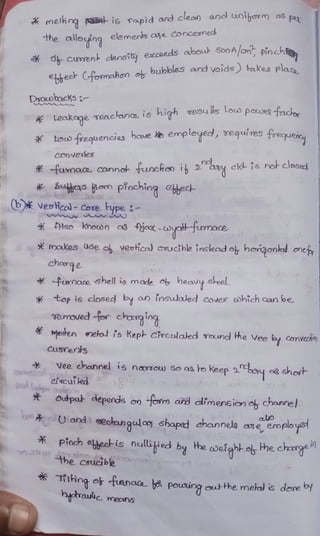 * melting is rapid and clean and uniform as per
the alloying elements are concerned
* If current density exceeds about 500A/cm², pinch
effect (formation of bubbles and voids) takes place
Drawbacks :-
* Leakage reactance is high results low power factor
* Low frequencies have employed, requires frequency
converter
* furnace cannot function if 2ndary ckt is not closed
* Suffers from pinching effect
(b)* vertical-core type :-
* Also known as Ajax-wyatt furnace
* makes use of vertical crucible instead of horizontal one for
charge
* furnace shell is made of heavy steel
* top is closed by an insulated cover which can be
removed for charging
* Molten metal is kept circulated round the Vee by convection
currents
* vee channel is narrow so as to keep 2ndary as short
circuited
* output depends on form and dimension of channel
* U and rectangular shaped channels are also employed
* pinch effect is nullified by the weight of the charge in
the crucible
* Tilting of furnace for pouring out the metal is done by
hydraulic means